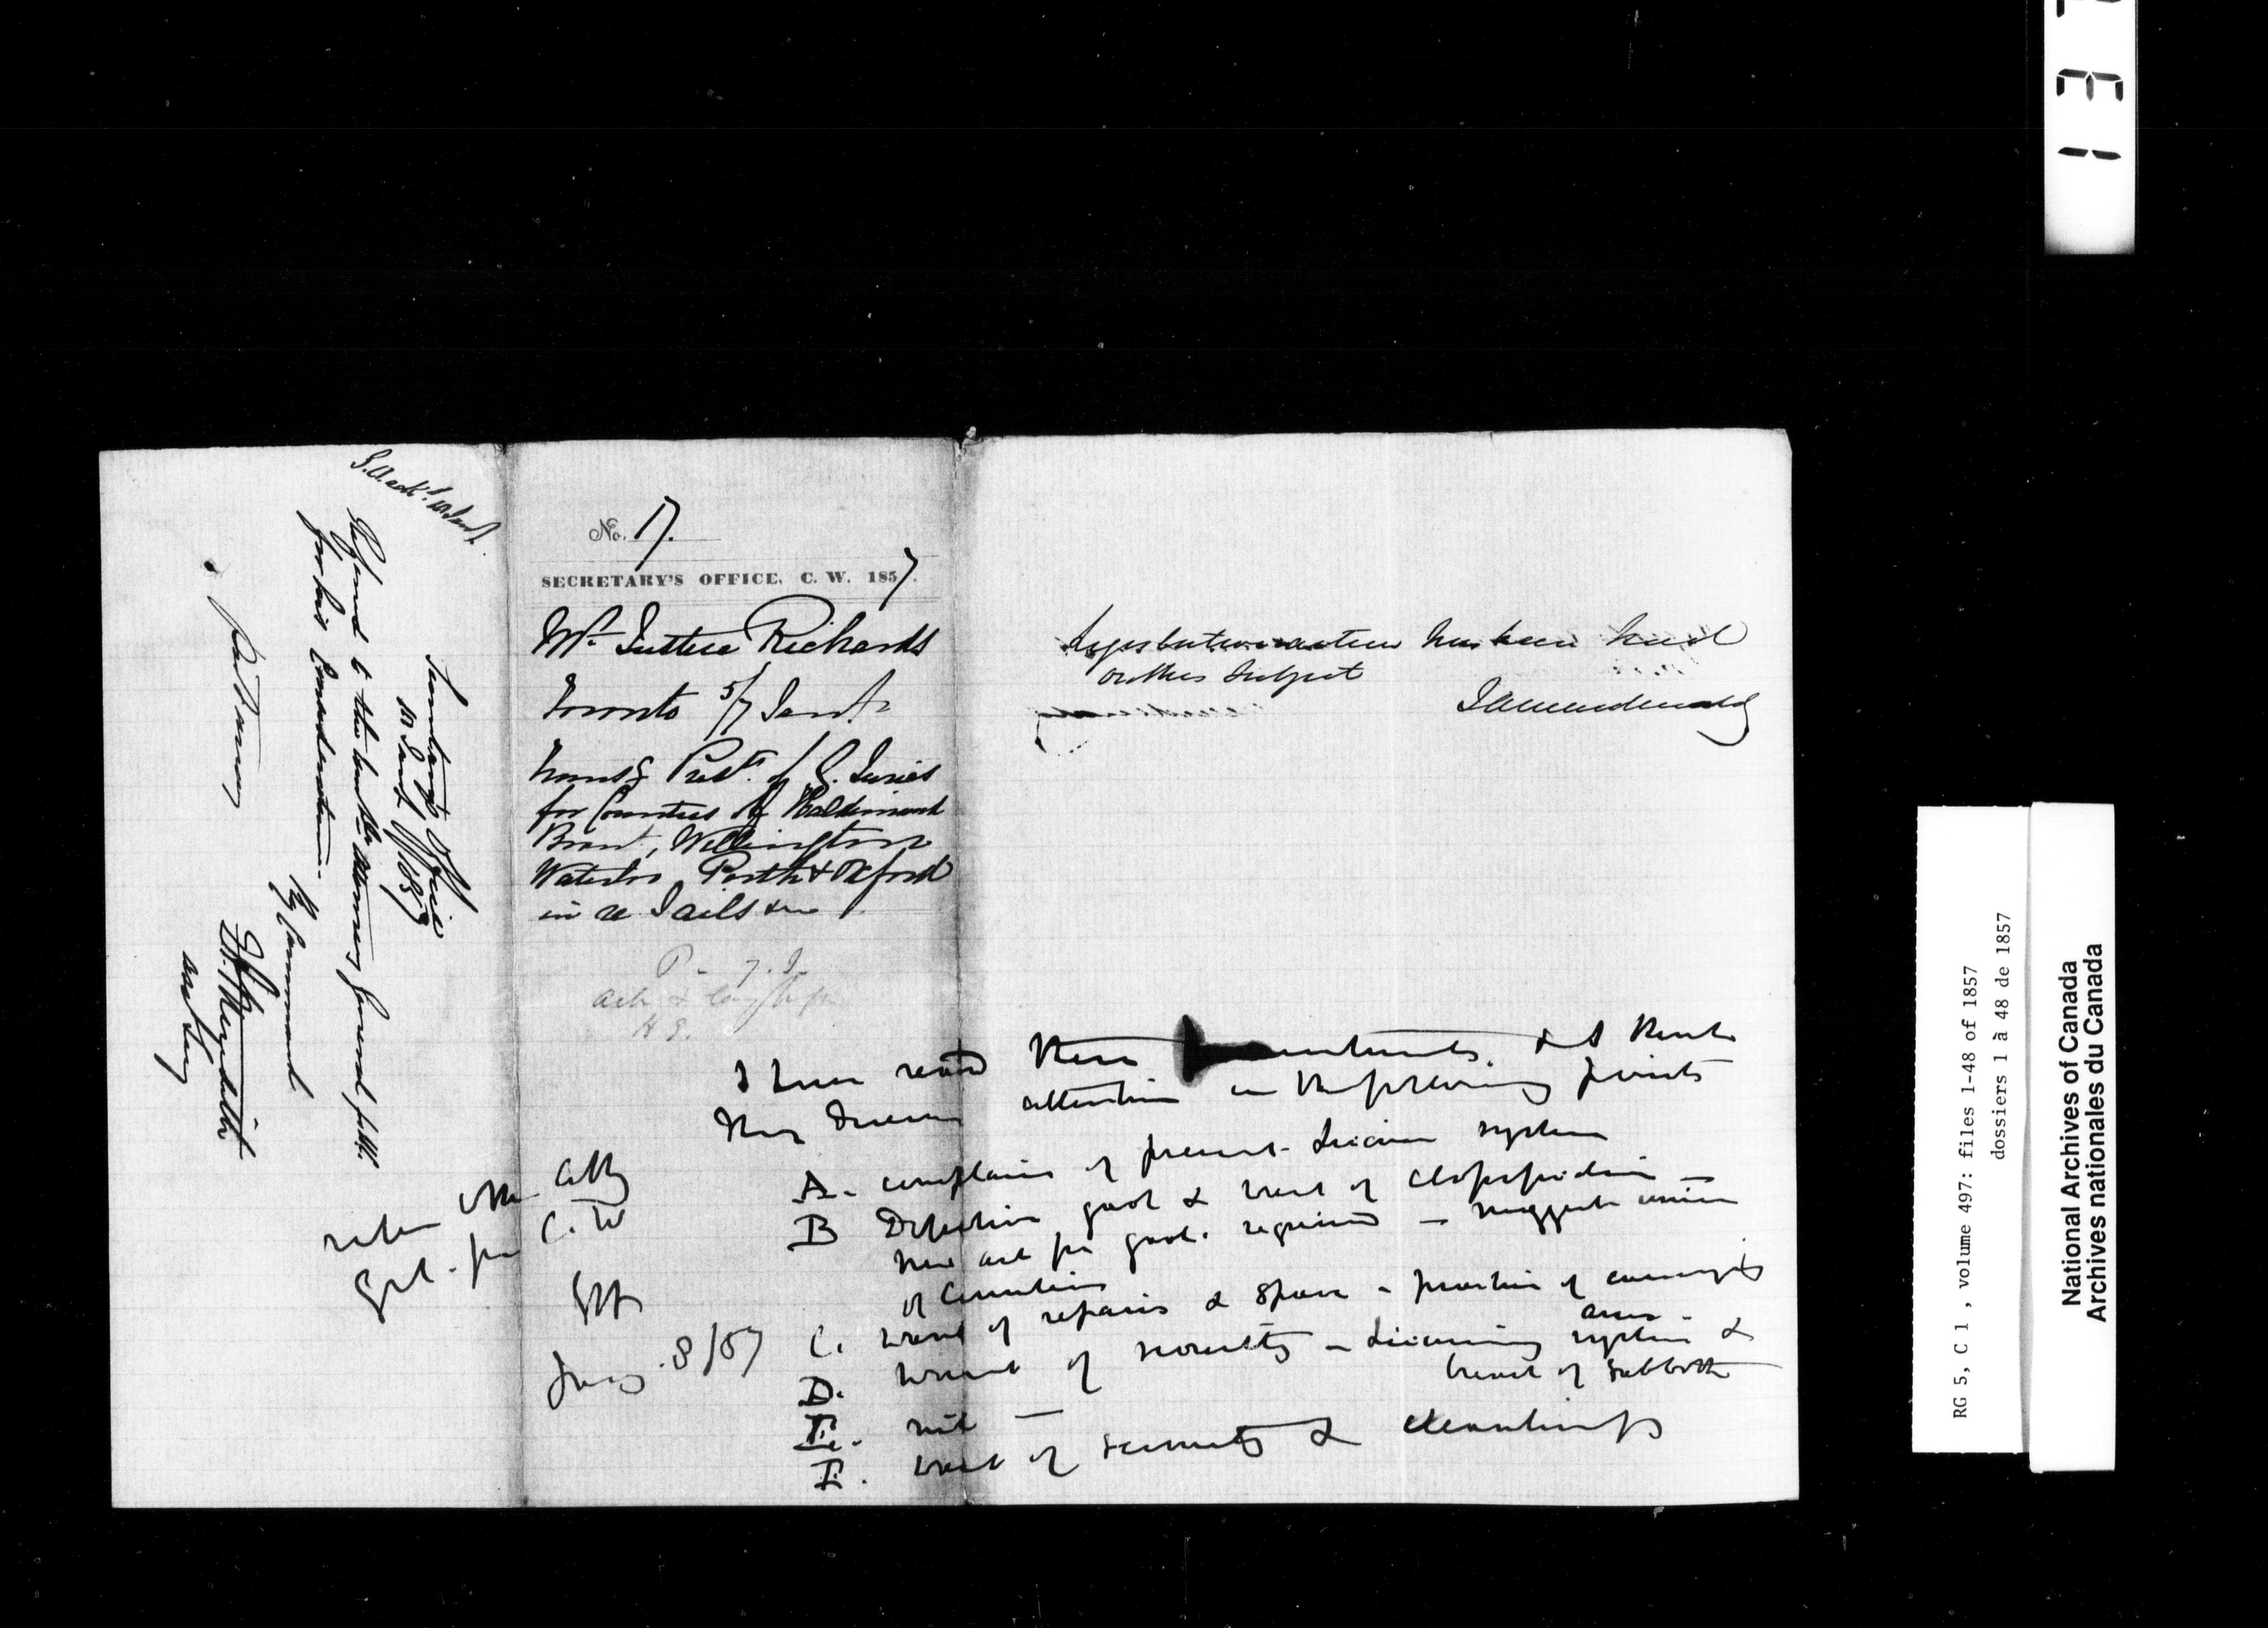 S. A. ack.d 10 Jan.y
Secretary's Office
10 Jany 1857
Referred to the hon. the Attorney General for U.C.
for his Consideration.
By Command
E. A. Meredith
Asst Secy
No. 17.
SECRETARY'S OFFICE, C. W. 1857.
Mr Justice Richards
Toronto 5/7 Jany
Transg Prest. of G. Juries
for Counties of Haldimand
Brant, Wellington
Waterloo, Perth & Oxford
in re Jails &c
Legislative action has been had
on this subject
JAMacdonald
I have read these presentments. & I think
they deserve attention on the following points
refer the Atty
Gel. for C. W
Jany 8/57
A. complains of present license system
B Defective gaol & want of classification —
new act for gaols required — suggests union
of Counties
C. want of repairs & space — practice of carrying
arms
D. want of security — licensing system &
breach of Sabbath
E. nil —
F. want of security & cleanliness
RG 5, C 1, volume 497: files 1-48 of 1857
dossiers 1 à 48 de 1857
National Archives of Canada
Archives nationales du Canada